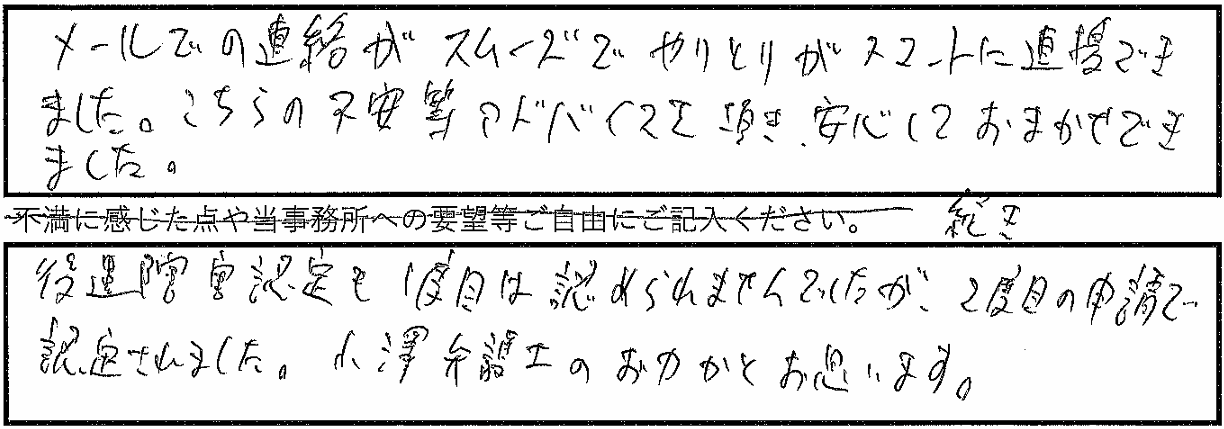 メールでの連絡がスムーズでやりとりがスマートに連携でき
ました。こちらの不安等アドバイスを頂き、安心しておまかせでき
ました。
不満に感じた点や当事務所への要望等ご自由にご記入ください。 続き
後遺障害認定も1度目は認められませんでしたが、2度目の申請で
認定されました。小澤弁護士のお力かとお思います。